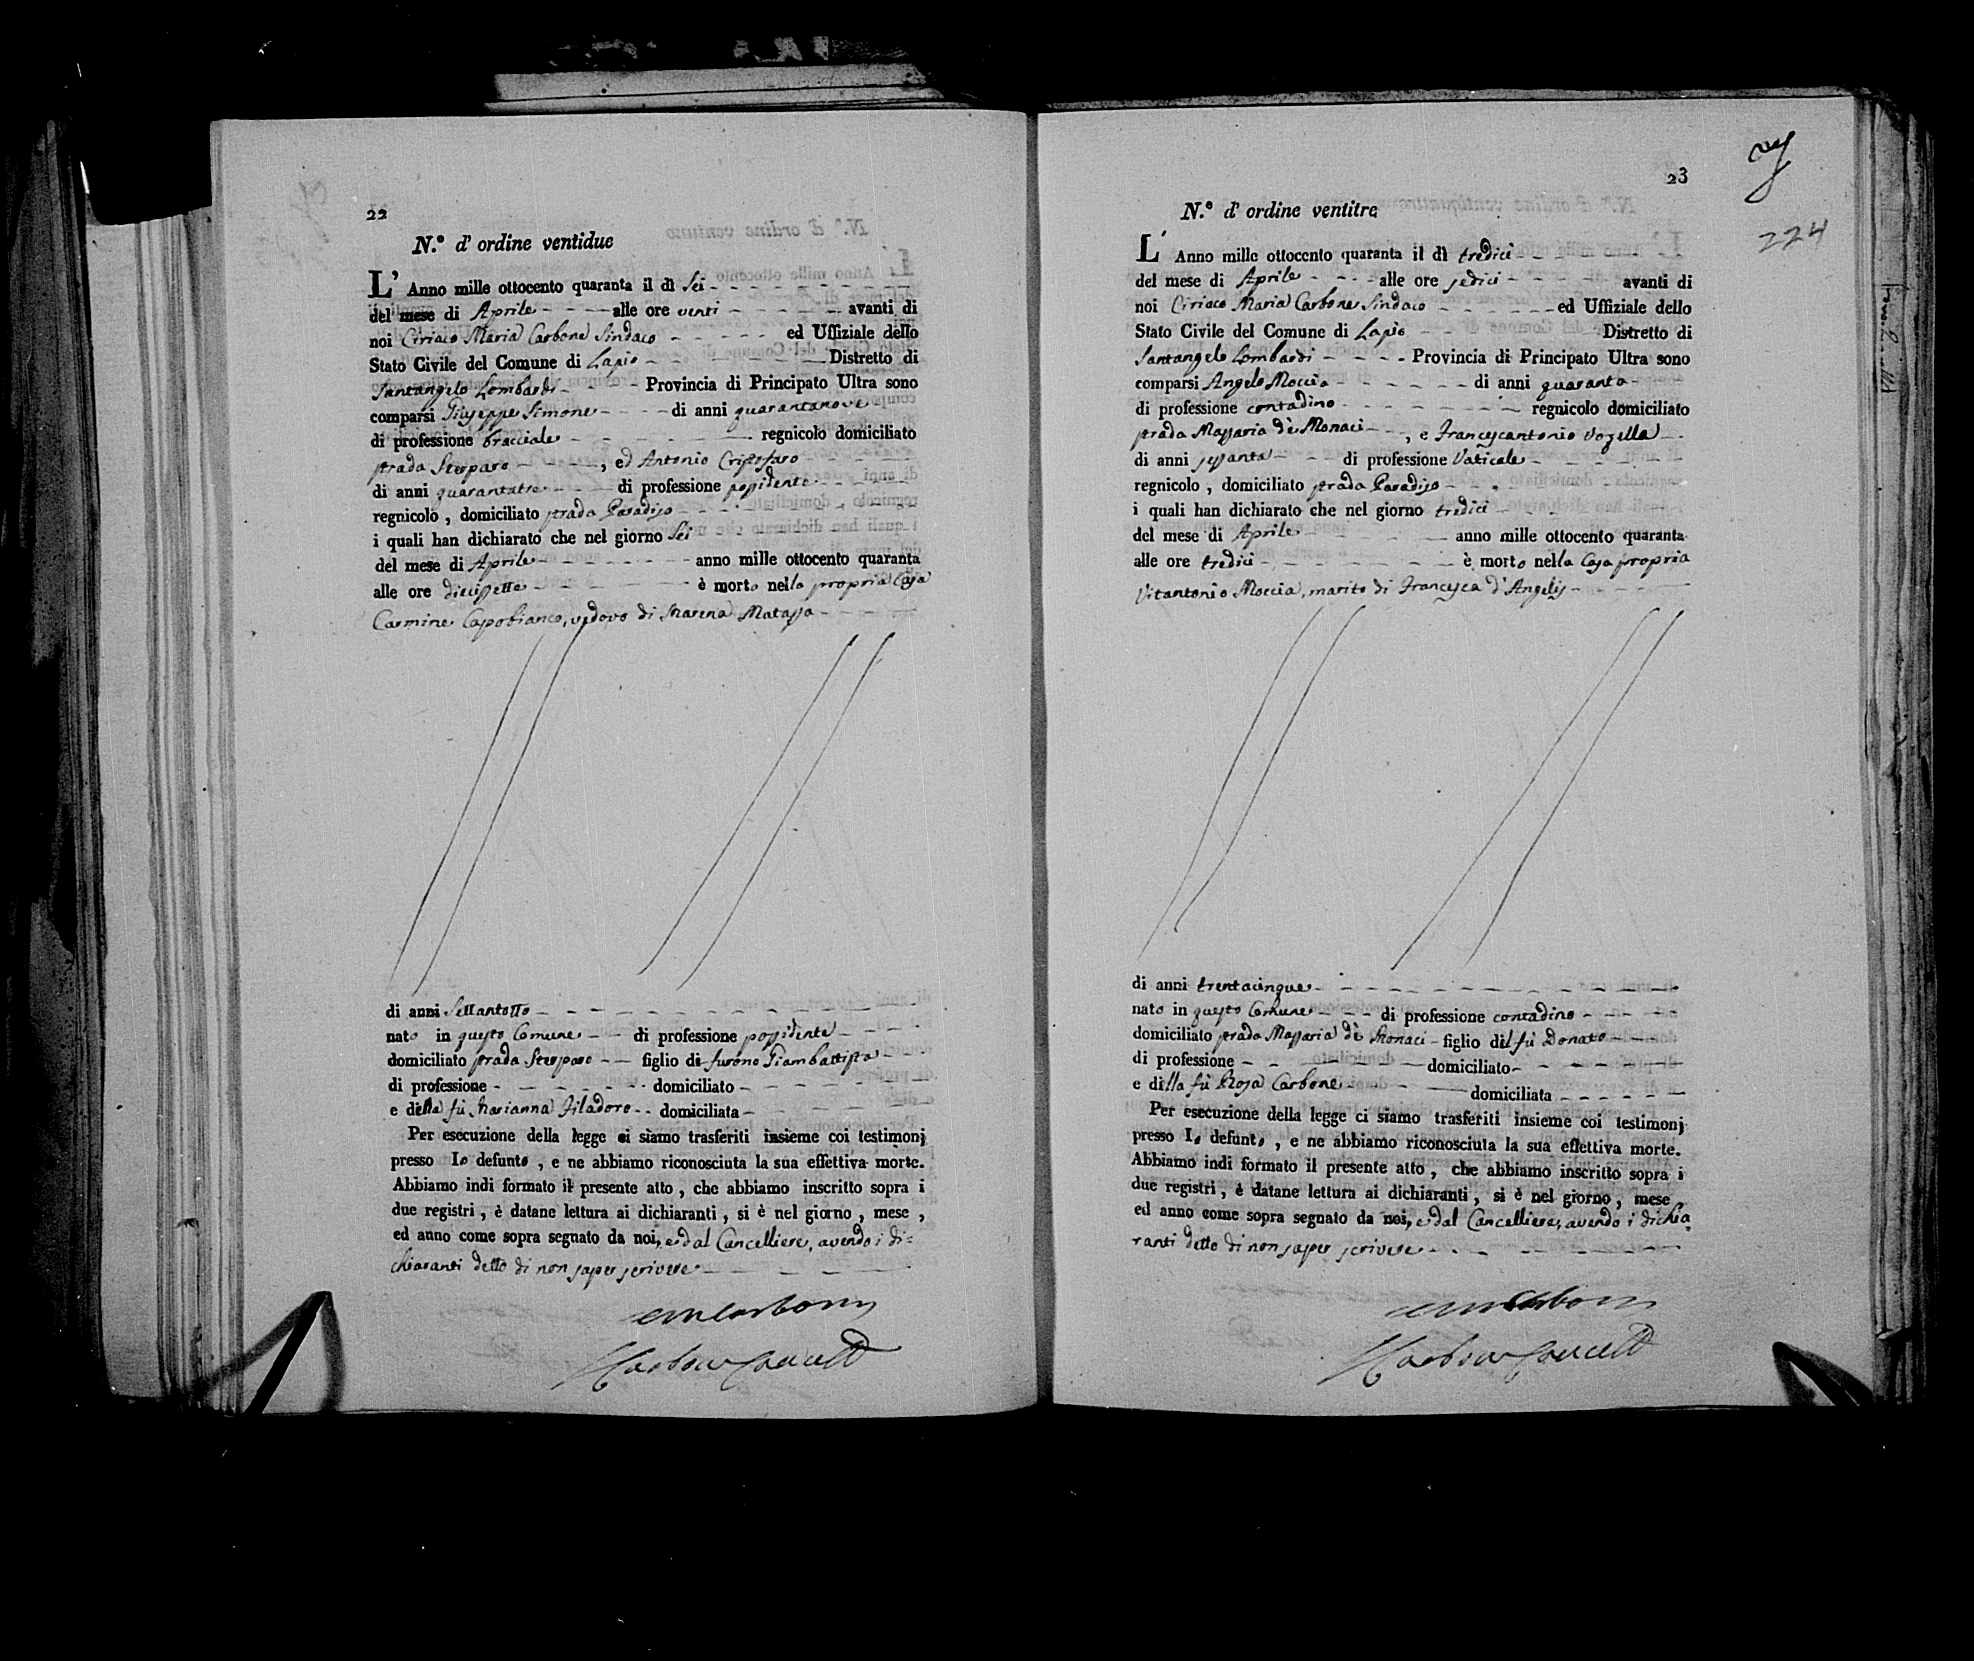 22
N.º d' ordine ventidue
L' Anno mille ottocento quaranta il dì Sei
del mese di Aprile alle ore venti avanti di
noi Ciriaco Maria Carbone Sindaco ed Uffiziale dello
Stato Civile del Comune di Lapio Distretto di
Santangelo Lombardi Provincia di Principato Ultra sono
comparsi Giuseppe Simone di anni quarantanove
di professione bracciale regnicolo domiciliato
strada Sterparo, ed Antonio Cristofaro
di anni quarantatre di professione possidente
regnicolo, domiciliato strada Paradiso
i quali han dichiarato che nel giorno Sei
del mese di Aprile anno mille ottocento quaranta
alle ore diecissette è morto nella propria Casa
Carmine Capobianco, vedovo di Marena Matassa
di anni Settantotto
nato in questo Comune di professione possidente
domiciliato strada Sterparo figlio di furono Giambattista
di professione domiciliato
e della fù Marianna Filadoro domiciliata
Per esecuzione della legge ci siamo trasferiti insieme coi testimonj
presso lo defunto, e ne abbiamo riconosciuta la sua effettiva morte.
Abbiamo indi formato il presente atto, che abbiamo inscritto sopra i
due registri, è datane lettura ai dichiaranti, si è nel giorno, mese,
ed anno come sopra segnato da noi, e dal Cancelliere, avendo i di=
chiaranti detto di non saper scrivere
23
224
N.º d' ordine ventitre
L' Anno mille ottocento quaranta il dì tredici
del mese di Aprile alle ore sedici avanti di
noi Ciriaco Maria Carbone Sindaco ed Uffiziale dello
Stato Civile del Comune di Lapio Distretto di
Santangelo Lombardi Provincia di Principato Ultra sono
comparsi Angelo Moccia di anni quaranta
di professione contadino regnicolo domiciliato
strada Massaria de' Monaci, e Francescantonio Vozella
di anni sessanta di professione Vaticale
regnicolo, domiciliato strada Paradiso
i quali han dichiarato che nel giorno tredici
del mese di Aprile anno mille ottocento quaranta
alle ore tredici è morto nella Casa propria
Vitantonio Moccia, marito di Francesca d'Angelis
di anni trentacinque
nato in questo Comune di professione contadino
domiciliato strada Massaria de' Monaci figlio del fù Donato
di professione domiciliato
e della fù Rosa Carbone domiciliata
Per esecuzione della legge ci siamo trasferiti insieme coi testimonj
presso lo defunto, e ne abbiamo riconosciuta la sua effettiva morte.
Abbiamo indi formato il presente atto, che abbiamo inscritto sopra i
due registri, è datane lettura ai dichiaranti, si è nel giorno, mese,
ed anno come sopra segnato da noi, e dal Cancelliere, avendo i dichia=
ranti detto di non saper scrivere